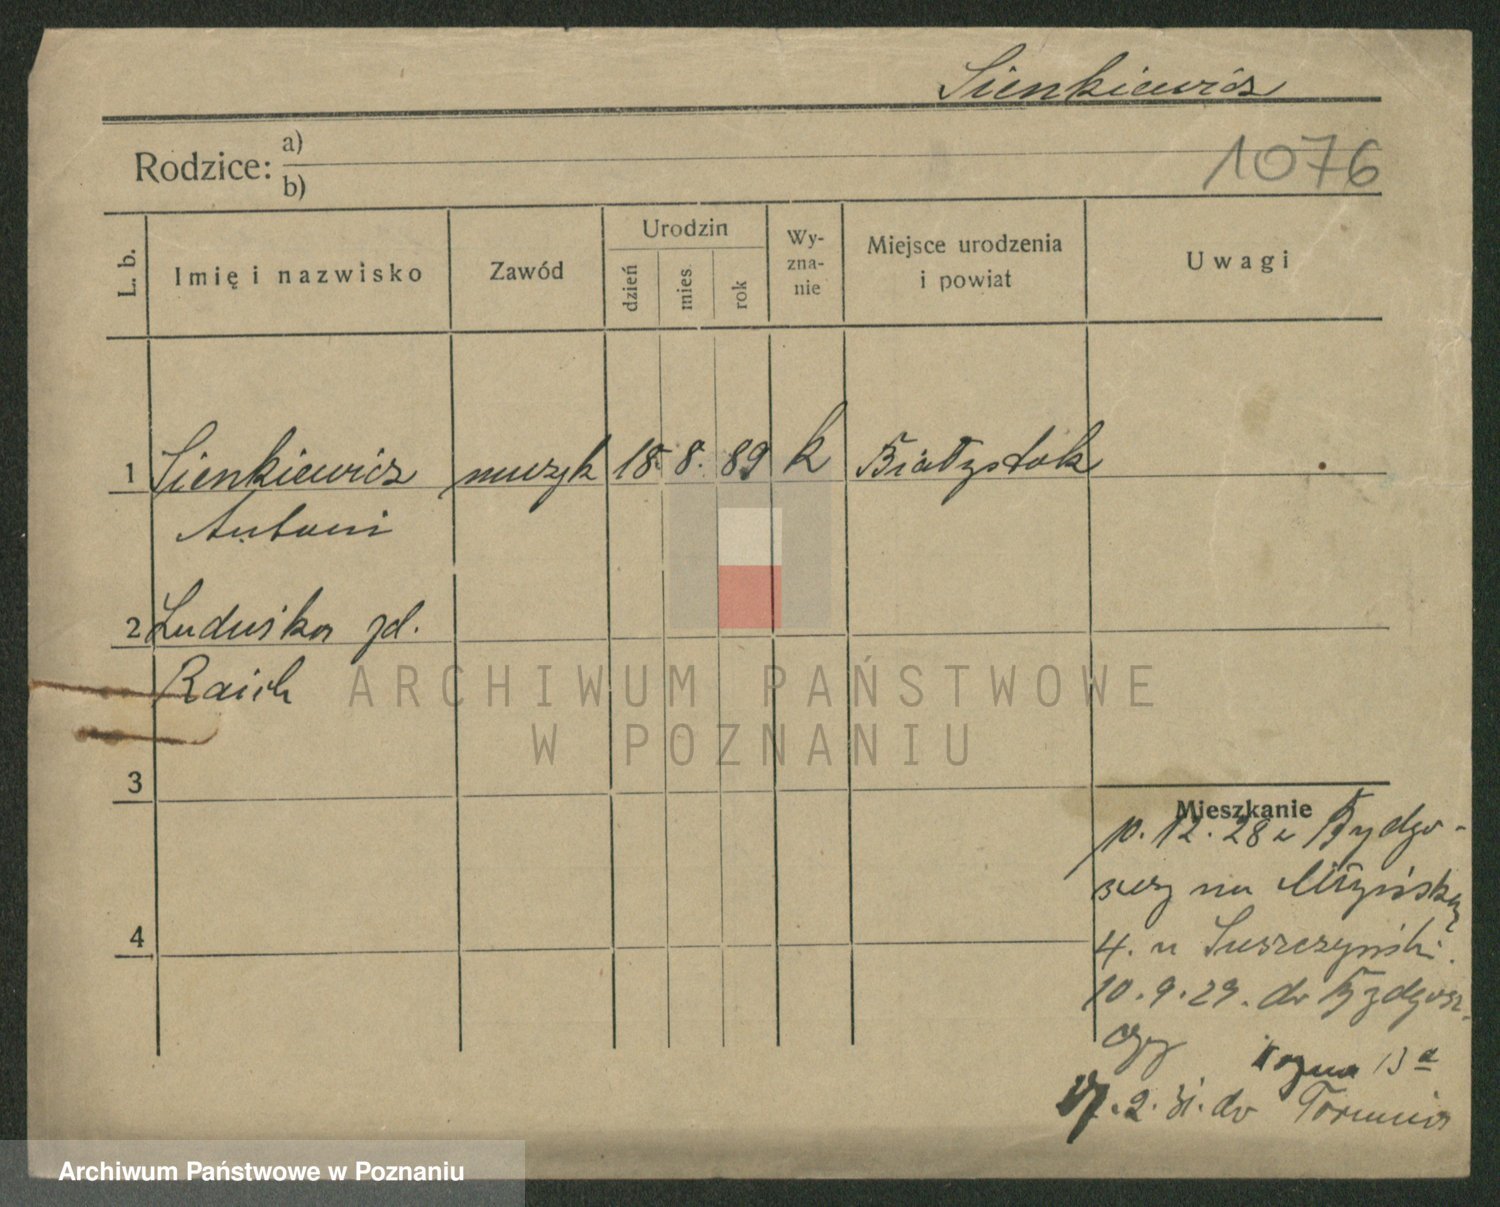 Sienkiewicz
Rodzice: a)
b)
1076
L. b.
Imię i nazwisko
Zawód
Urodzin
dzień
mies
rok
Wy-
zna-
nie
Miejsce urodzenia
i powiat
Uwagi
1 Sienkiewicz muzyk 18. 8. 89 k Białystok
Antoni
2 Ludwika zd.
Raich
ARCHIWUM PAŃSTWOWE
W POZNANIU
3
Mieszkanie
10. 12. 28 z Bydgo-
szczy na Młyńską
4. u Suszczyński.
10. 9. 29. do Bydgosz-
czy 13a
17. 2. 31. do Torunia
4
Archiwum Państwowe w Poznaniu